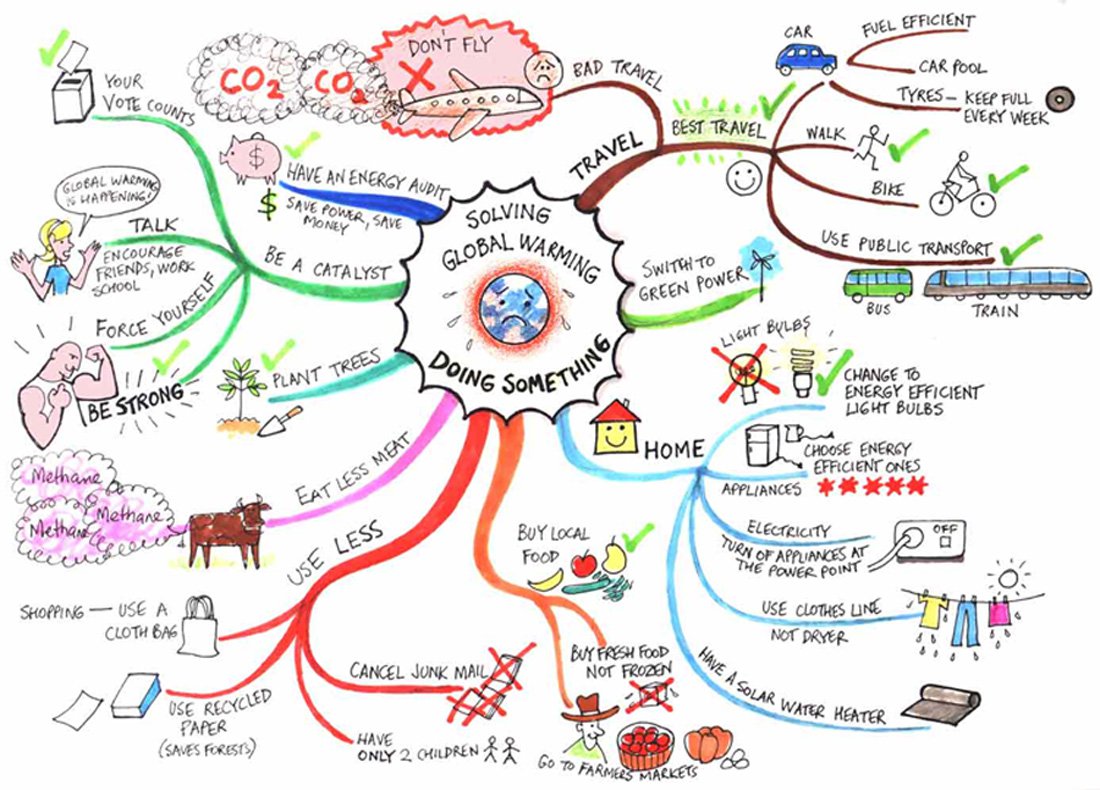 SOLVING
GLOBAL WARMING
DOING SOMETHING
TRAVEL
BAD TRAVEL
DON'T FLY
CO2
CO2
BEST TRAVEL
CAR
FUEL EFFICIENT
CAR POOL
TYRES — KEEP FULL
EVERY WEEK
WALK
BIKE
USE PUBLIC TRANSPORT
BUS
TRAIN
SWITCH TO
GREEN POWER
HOME
LIGHT BULBS
CHANGE TO
ENERGY EFFICIENT
LIGHT BULBS
CHOOSE ENERGY
EFFICIENT ONES
APPLIANCES
ELECTRICITY
TURN OF APPLIANCES AT
THE POWER POINT
OFF
USE CLOTHES LINE
NOT DRYER
HAVE A SOLAR WATER HEATER
BUY LOCAL
FOOD
BUY FRESH FOOD
NOT FROZEN
GO TO FARMERS MARKETS
USE LESS
SHOPPING — USE A
CLOTH BAG
USE RECYCLED
PAPER
(SAVES FORESTS)
CANCEL JUNK MAIL
HAVE
ONLY 2 CHILDREN
EAT LESS MEAT
Methane
Methane
Methane
PLANT TREES
BE A CATALYST
YOUR
VOTE COUNTS
TALK
GLOBAL WARMING
IS HAPPENING!
ENCOURAGE
FRIENDS, WORK
SCHOOL
FORCE YOURSELF
BE STRONG
HAVE AN ENERGY AUDIT
SAVE POWER, SAVE
MONEY
$
$